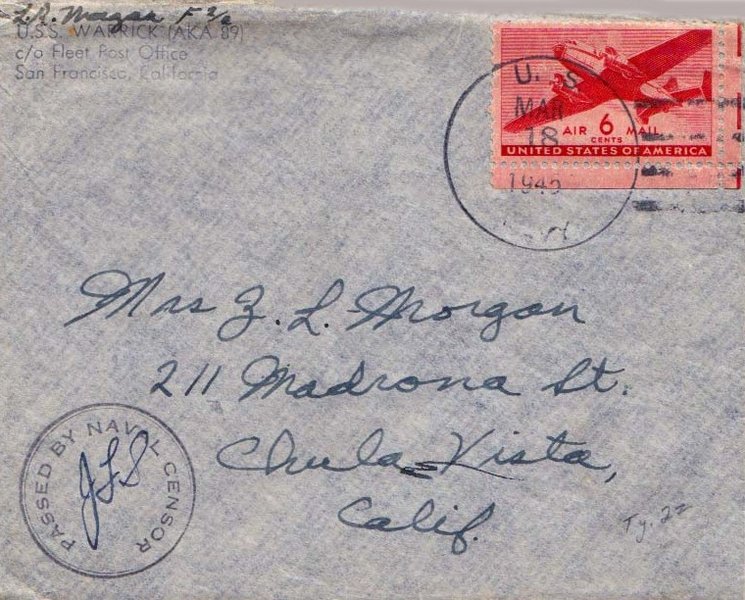 Z.L. Morgan F 2/c
U.S.S. WARRICK (AKA 89)
c/o Fleet Post Office
San Francisco, California
U. S.
MAR
18
1945
AIR 6 MAIL
CENTS
UNITED STATES OF AMERICA
Mrs Z. L. Morgan
211 Madrona St.
Chula Vista,
Calif.
PASSED BY NAVAL CENSOR
JLS
Ty. 22